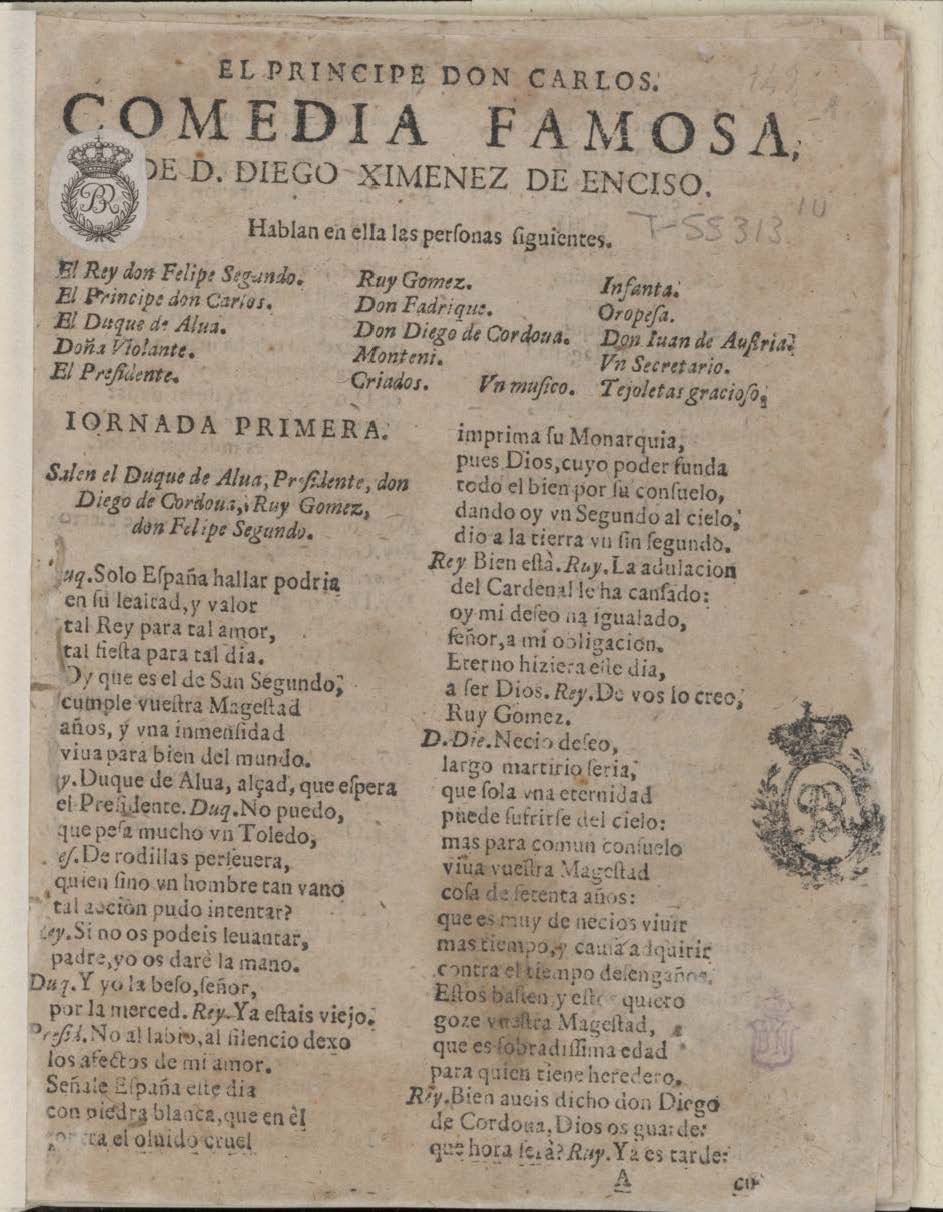 EL PRINCIPE DON CARLOS.
COMEDIA FAMOSA,
DE D. DIEGO XIMENEZ DE ENCISO.
T-55313
Hablan en ella las perſonas ſiguientes.
El Rey don Felipe Segundo.
El Principe don Carlos.
El Duque de Alua.
Doña Violante.
El Preſidente.
Ruy Gomez.
Don Fadrique.
Don Diego de Cordoua.
Monteni.
Criados. Vn muſico.
Infanta.
Oropeſa.
Don Iuan de Auſtria.
Vn Secretario.
Tejoletas gracioſo.
IORNADA PRIMERA.
Salen el Duque de Alua, Preſidente, don
Diego de Cordoua, Ruy Gomez,
don Felipe Segundo.
uq. Solo Eſpaña hallar podria
en ſu lealtad, y valor
tal Rey para tal amor,
tal fieſta para tal dia.
Oy que es el de San Segundo,
cumple vueſtra Mageſtad
años, y vna inmenſidad
viua para bien del mundo.
y. Duque de Alua, alçad, que eſpera
el Preſidente. Duq. No puedo,
que peſa mucho vn Toledo,
eſ. De rodillas perſeuera,
quien ſino vn hombre tan vano
tal accion pudo intentar?
ey. Si no os podeis leuantar,
padre, yo os darè la mano.
Duq. Y yo la beſo, ſeñor,
por la merced. Rey. Ya eſtais viejo.
Preſid. No al labio, al ſilencio dexo
los afectos de mi amor.
Señale Eſpaña eſte dia
con piedra blanca, que en èl
contra el oluido cruel
imprima ſu Monarquia,
pues Dios, cuyo poder funda
todo el bien por ſu conſuelo,
dando oy vn Segundo al cielo,
dio a la tierra vn ſin ſegundo.
Rey Bien eſtà. Ruy. La adulacion
del Cardenal le ha canſado:
oy mi deſeo ha igualado,
ſeñor, a mi obligacion.
Eterno hiziera eſte dia,
a ſer Dios. Rey. De vos lo creo,
Ruy Gomez.
D. Die. Necio deſeo,
largo martirio ſeria,
que ſola vna eternidad
puede ſufrirſe del cielo:
mas para comun conſuelo
viua vueſtra Mageſtad
coſa de ſetenta años:
que es muy de necios viuir
mas tiempo, y cauſa adquirir
contra el tiempo deſengaños.
Eſtos baſten, y eſtos quiero
goze vueſtra Mageſtad,
que es ſobradiſſima edad
para quien tiene heredero.
Rey. Bien aueis dicho don Diego
de Cordoua, Dios os guarde:
que hora ſerà? Ruy. Ya es tarde:
A
BN